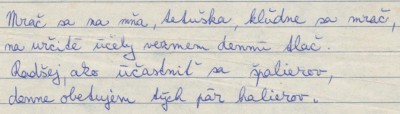 Mrač sa na mňa, tetuška, kľudne sa mrač,
na určité účely vezmem dennú tlač.
Radšej, ako účastniť sa špalierov,
denne obetujem tých pár halierov.